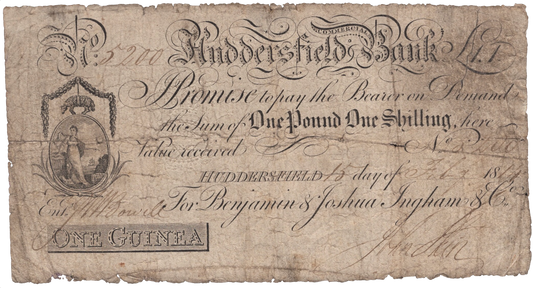 No. 5200 Huddersfield COMMERCIAL Bank £1.1
I Promise to pay the Bearer on Demand
the Sum of One Pound One Shilling, here
Value received No. 5200
HUDDERSFIELD 15 day of Feb 18
For Benjamin & Joshua Ingham & Co.
Ent.
ONE GUINEA